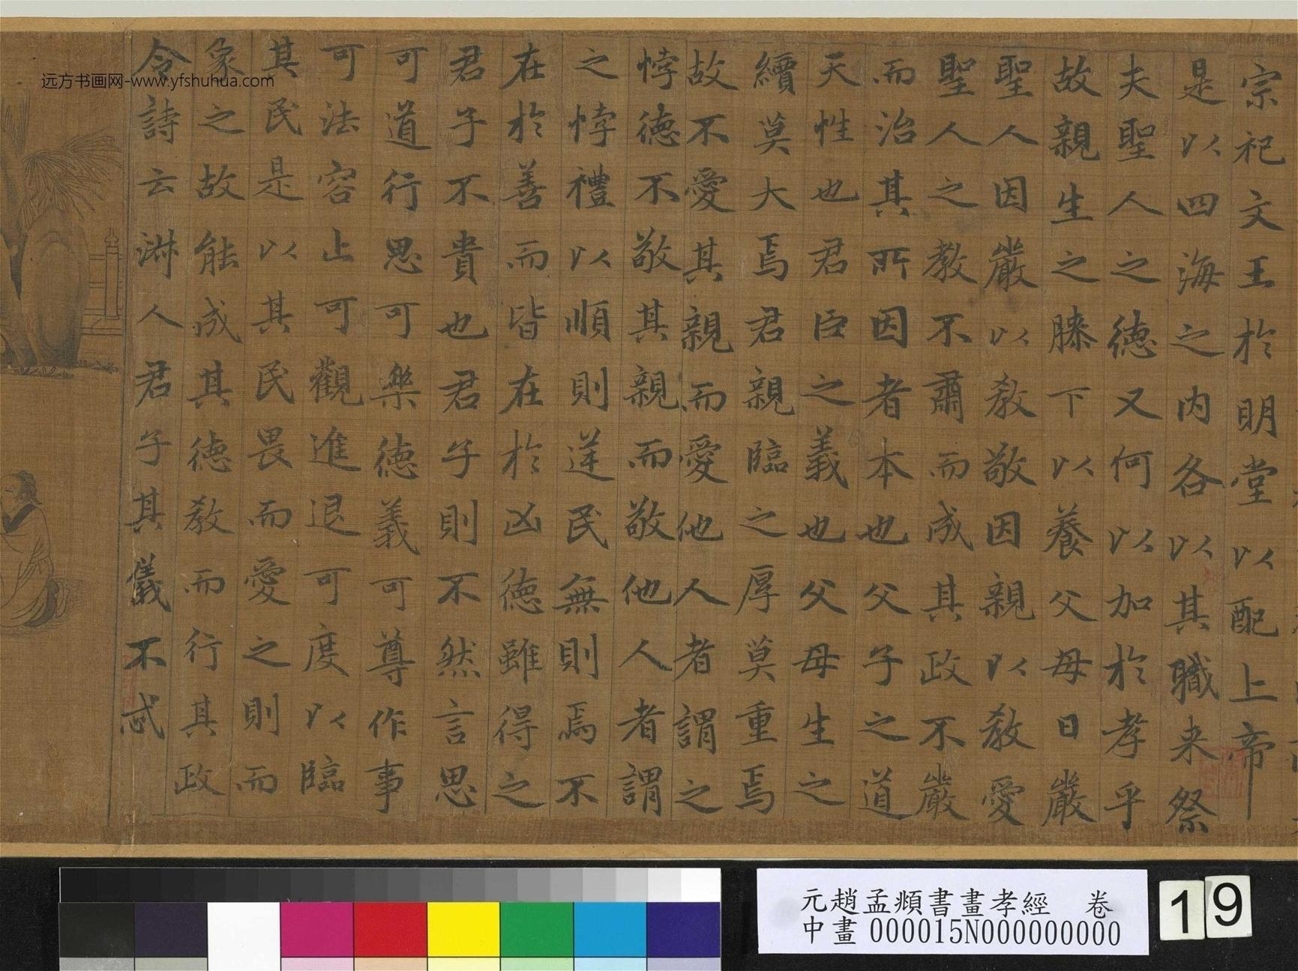 宗祀文王於明堂以配上帝
是以四海之内各以其職来祭
夫聖人之德又何以加於孝乎
故親生之膝下以養父母日嚴
聖人因嚴以教敬因親以教愛
聖人之教不肅而成其政不嚴
而治其所因者本也父子之道
天性也君臣之義也父母生之
續莫大焉君親臨之厚莫重焉
故不愛其親而愛他人者謂之
悖德不敬其親而敬他人者謂
之悖禮以順則逆民無則焉不
在於善而皆在於凶德雖得之
君子不貴也君子則不然言思
可道行思可樂德義可尊作事
可法容止可觀進退可度以臨
其民是以其民畏而愛之則而
象之故能成其德教而行其政
令詩云淋人君子其儀不忒
远方书画网-www.yfshuhua.com
元趙孟頫書畫孝經 卷
中畫 000015N000000000
19